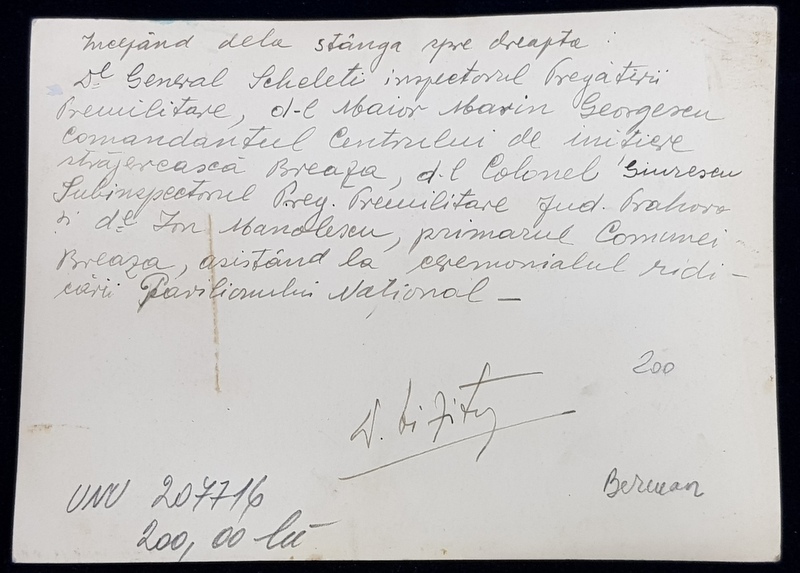 Începând dela stânga spre dreapta :
D-l General Scheleti inspectorul Pregătirii
Premilitare, d-l Maior Marin Georgescu
Comandantul Centrului de initiere
străjerească Breaza, d-l Colonel Giurescu
Subinspectorul Preg. Premilitare Jud. Prahova
și d-l Ion Manolescu, primarul Comunei
Breaza, asistând la ceremonialul ridi-
cării Pavilionului Național —
200
D.
Berman
UNU 207716
200,00 lei